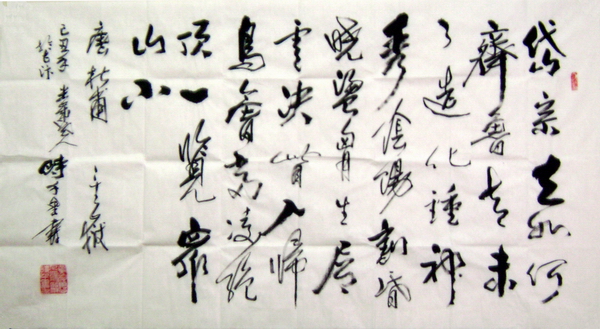 岱宗夫如何
齊魯青未
了造化鍾神
秀陰陽割昏
曉盪胸生層
雲決眥入歸
鳥會當凌絕
頂一覽眾
山小
唐杜甫 嶽
己丑年 書